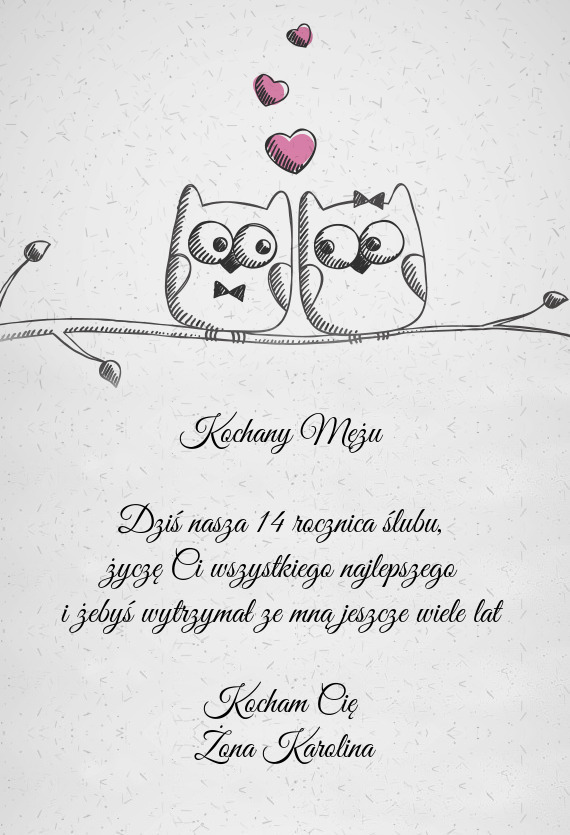 Kochany Mężu
Dziś nasza 14 rocznica ślubu,
życzę Ci wszystkiego najlepszego
i żebyś wytrzymał ze mną jeszcze wiele lat
Kocham Cię
Żona Karolina